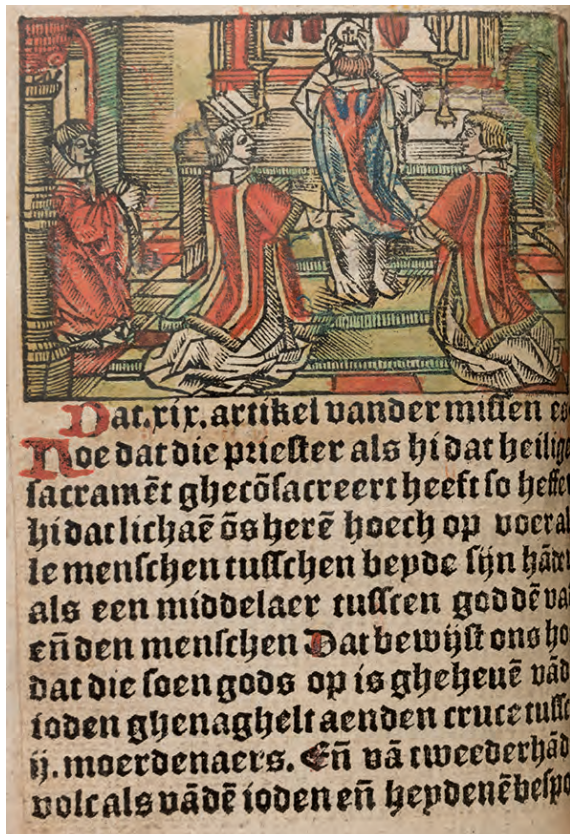 Dat .xix. artikel vander missen es
Hoe dat die priester als hi dat heilige
sacramēt ghecōsacreert heeft so heffet
hi dat lichaē ōs herē hoech op voer al
le menschen tusschen beyde sijn hādē
als een middelaer tusscen god dē va
eñ den menschen Dat bewijst ons ho
dat die soen gods op is gheheuē vād
ioden ghenaghelt aenden cruce tussc
ij. moerdenaers. Eñ vā tweederhād
volc als vādē ioden eñ heydenē bespo